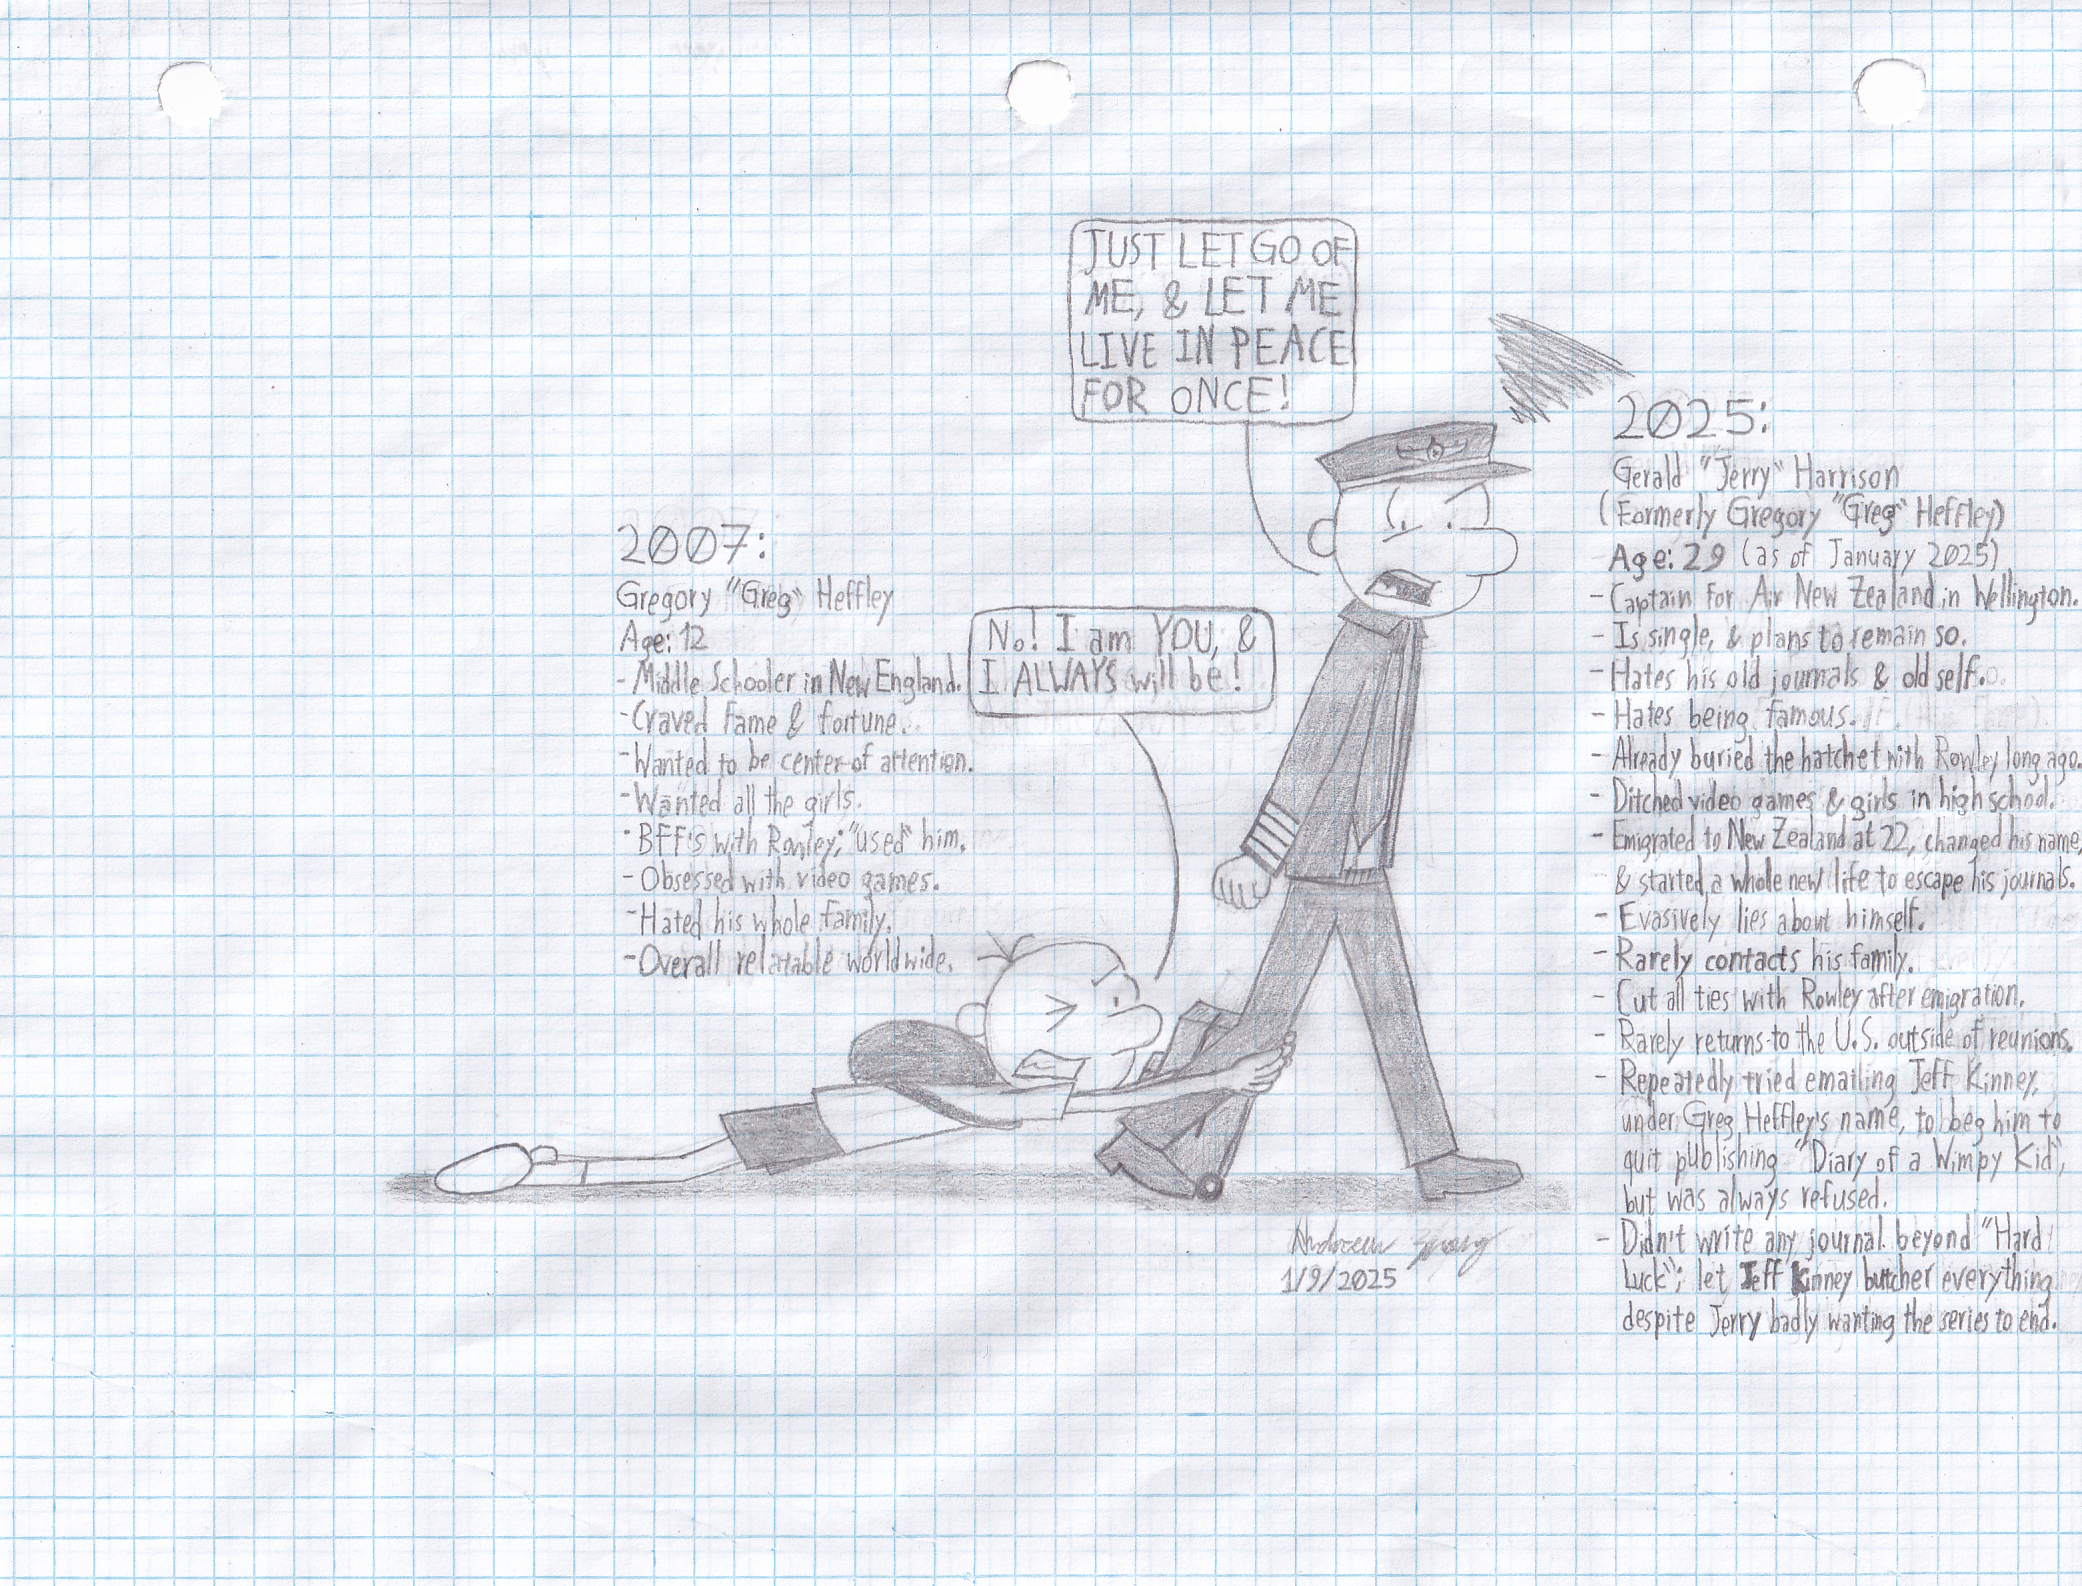 JUST LET GO OF
ME, & LET ME
LIVE IN PEACE
FOR ONCE!
2007:
Gregory "Greg" Heffley
Age: 12
- Middle Schooler in New England.
- Craved fame & fortune.
- Wanted to be center of attention.
- Wanted all the girls.
- BFF's with Rowley; "used" him.
- Obsessed with video games.
- Hated his whole family.
- Overall relatable worldwide.
No! I am YOU, &
I ALWAYS will be!
2025:
Gerald "Jerry" Harrison
(Formerly Gregory "Greg" Heffley)
Age: 29 (as of January 2025)
- Captain for Air New Zealand in Wellington.
- Is single, & plans to remain so.
- Hates his old journals & old self.
- Hates being famous.
- Already buried the hatchet with Rowley long ago.
- Ditched video games & girls in high school.
- Emigrated to New Zealand at 22, changed his name,
& started a whole new life to escape his journals.
- Evasively lies about himself.
- Rarely contacts his family.
- Cut all ties with Rowley after emigration.
- Rarely returns to the U.S. outside of reunions.
- Repeatedly tried emailing Jeff Kinney,
under Greg Heffley's name, to beg him to
quit publishing "Diary of a Wimpy Kid",
but was always refused.
- Didn't write any journal beyond "Hard
Luck"; let Jeff Kinney butcher everything
despite Jerry badly wanting the series to end.
1/9/2025